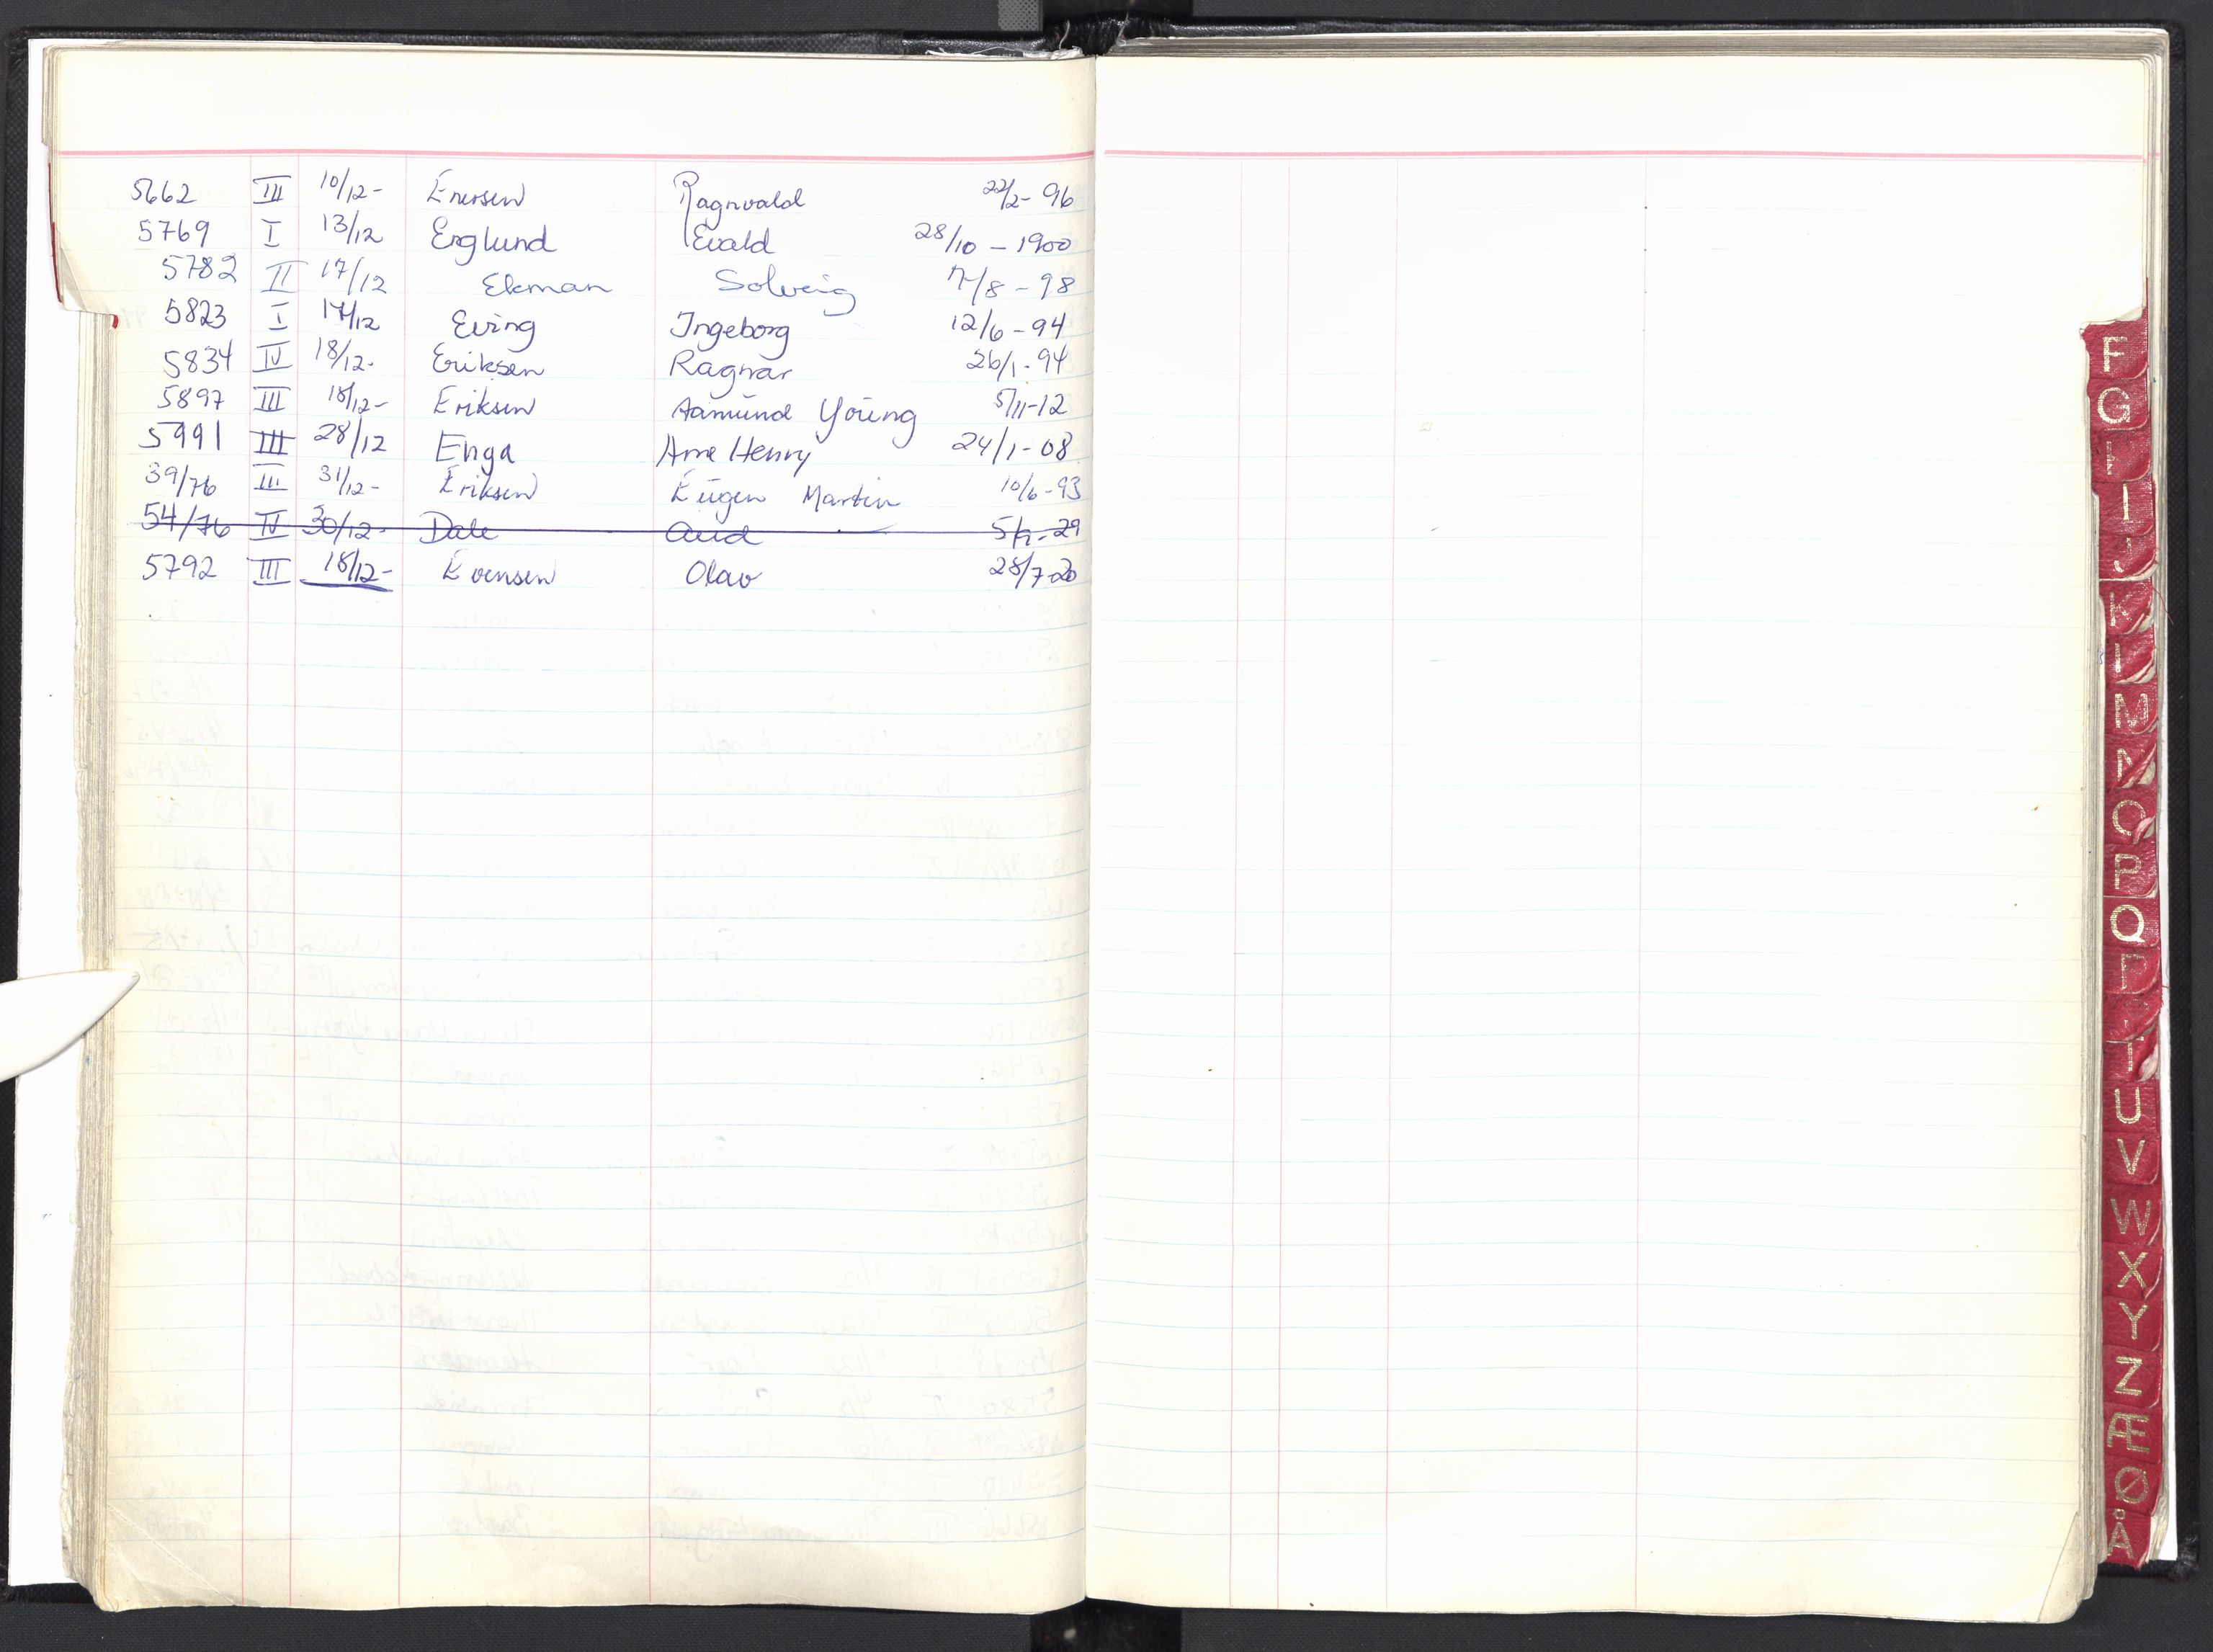 5662 III 10/12- Enersen Ragnvald 22/2- 96
5769 I 13/12 Englund Evald 28/10 - 1900
5782 II 17/12 Ekman Solveig 7/8 - 98
5823 I 17/12 Eving Ingeborg 12/6 - 94
5834 IV 18/12. Eriksen Ragnar 26/1. 94
5897 III 18/12- Eriksen Aamund Young 5/11-12
5991 III 28/12 Enga Arne Henry 24/1- 08
39/76 III 31/12- Eriksen Eugen Martin 10/6-93
54/76 IV 30/12- Dale Aud 29
5792 III 18/12- Evensen Olav 28/7-20
F
G
H
I
J
K
L
M
N
O
P
Q
R
T
U
V
W
X
Y
Z
Æ
Ø
Å